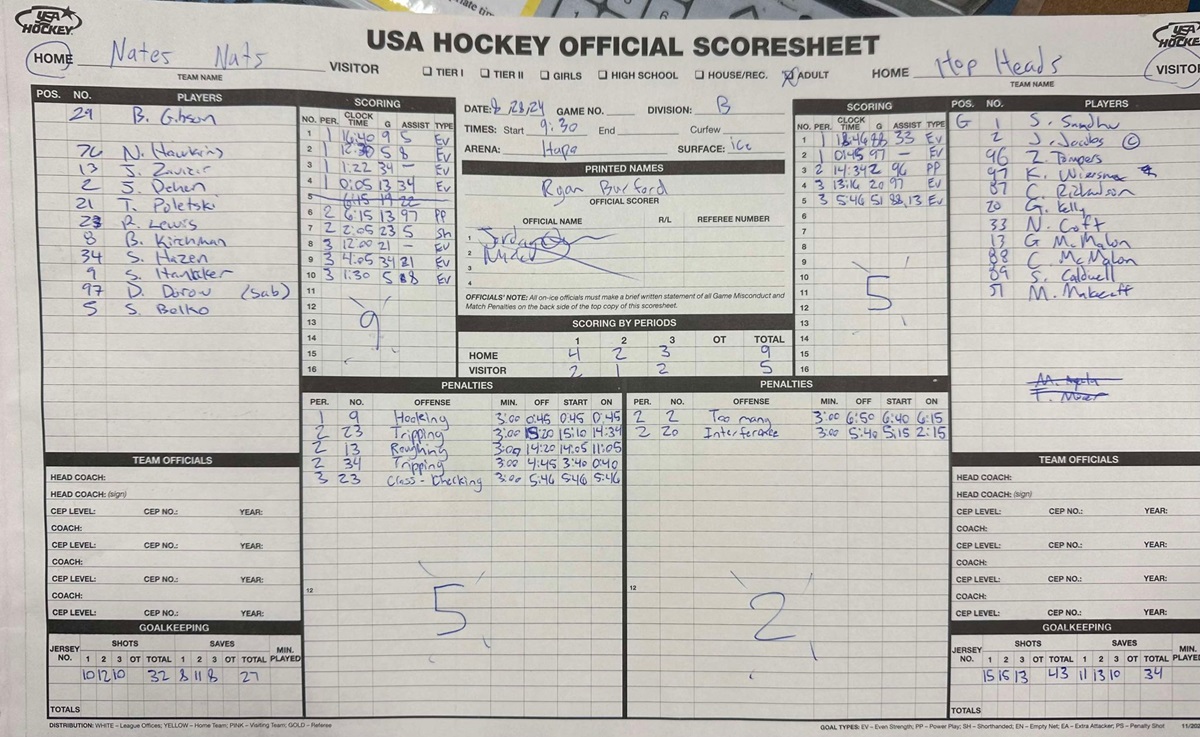 USA HOCKEY
USA HOCKEY OFFICIAL SCORESHEET
USA HOCKEY
HOME Nates Nats VISITOR
TEAM NAME
TIER I TIER II GIRLS HIGH SCHOOL HOUSE/REC. ADULT
HOME Hop Heads VISITOR
TEAM NAME
POS. NO. PLAYERS
29 B. Gibson
76 N. Hawkins
13 J. Zavizir
2 J. Dehen
21 T. Poletski
23 R. Lewis
8 B. Kirchman
34 S. Hazen
9 S. Hantaker
97 D. Dorow (sub)
5 S. Belko
SCORING
NO. PER. CLOCK TIME G ASSIST TYPE
1 1 16:40 9 5 Ev
2 1 12:30 5 8 Ev
3 1 1:22 34 - Ev
4 1 0:05 13 34 Ev
5 6:15 19 22
6 2 6:15 13 97 PP
7 2 2:05 23 5 Sh
8 3 12:00 21 - Ev
9 3 4:05 34 21 Ev
10 3 1:30 5 8 Ev
11
12
13
14
15
16
9
DATE: 8/28/24 GAME NO. DIVISION: B
TIMES: Start 9:30 End Curfew
ARENA: Hapa SURFACE: ice
PRINTED NAMES
Ryan Burford
OFFICIAL SCORER
OFFICIAL NAME R/L REFEREE NUMBER
1 Jordan
2
3
4
OFFICIALS' NOTE: All on-ice officials must make a brief written statement of all Game Misconduct and
Match Penalties on the back side of the top copy of this scoresheet.
SCORING BY PERIODS
1 2 3 OT TOTAL
HOME 4 2 3 9
VISITOR 2 1 2 5
SCORING
NO. PER. CLOCK TIME G ASSIST TYPE
1 1 18:46 88 33 Ev
2 1 0:45 97 - Ev
3 2 14:34 2 96 PP
4 3 13:16 20 97 Ev
5 3 5:46 51 88,13 Ev
6
7
8
9
10
11
12
13
14
15
16
5
POS. NO. PLAYERS
G 1 S. Sandhu
2 J. Jacobs C
96 Z. Tompers
97 K. Wiersma
87 C. Richardson
20 G. Kelly
33 N. Coft
13 G McMalon
88 C. McMalon
89 S. Caldwell
51 M. Makecaft
PENALTIES
PER. NO. OFFENSE MIN. OFF START ON
1 9 Hooking 3:00 0:45 0:45 0:45
2 23 Tripping 3:00 15:20 15:10 14:34
2 13 Roughing 3:00 14:20 14:05 11:05
2 34 Tripping 3:00 4:45 3:40 0:40
3 23 Cross-Checking 3:00 5:46 5:46 5:46
12
5
PENALTIES
PER. NO. OFFENSE MIN. OFF START ON
2 2 Too many 3:00 6:50 6:40 6:15
2 20 Interference 3:00 5:40 5:15 2:15
12
2
TEAM OFFICIALS
HEAD COACH:
HEAD COACH: (sign)
CEP LEVEL: CEP NO.: YEAR:
COACH:
CEP LEVEL: CEP NO.: YEAR:
COACH:
CEP LEVEL: CEP NO.: YEAR:
COACH:
CEP LEVEL: CEP NO.: YEAR:
GOALKEEPING
JERSEY NO. SHOTS SAVES MIN. PLAYED
1 2 3 OT TOTAL 1 2 3 OT TOTAL
10 12 10 32 8 11 8 27
TOTALS
TEAM OFFICIALS
HEAD COACH:
HEAD COACH: (sign)
CEP LEVEL: CEP NO.: YEAR:
COACH:
CEP LEVEL: CEP NO.: YEAR:
COACH:
CEP LEVEL: CEP NO.: YEAR:
COACH:
CEP LEVEL: CEP NO.: YEAR:
GOALKEEPING
JERSEY NO. SHOTS SAVES MIN. PLAYED
1 2 3 OT TOTAL 1 2 3 OT TOTAL
15 15 13 43 11 13 10 34
TOTALS
DISTRIBUTION: WHITE – League Offices; YELLOW – Home Team; PINK – Visiting Team; GOLD – Referee
GOAL TYPES: EV – Even Strength; PP – Power Play; SH – Shorthanded; EN – Empty Net; EA – Extra Attacker; PS – Penalty Shot